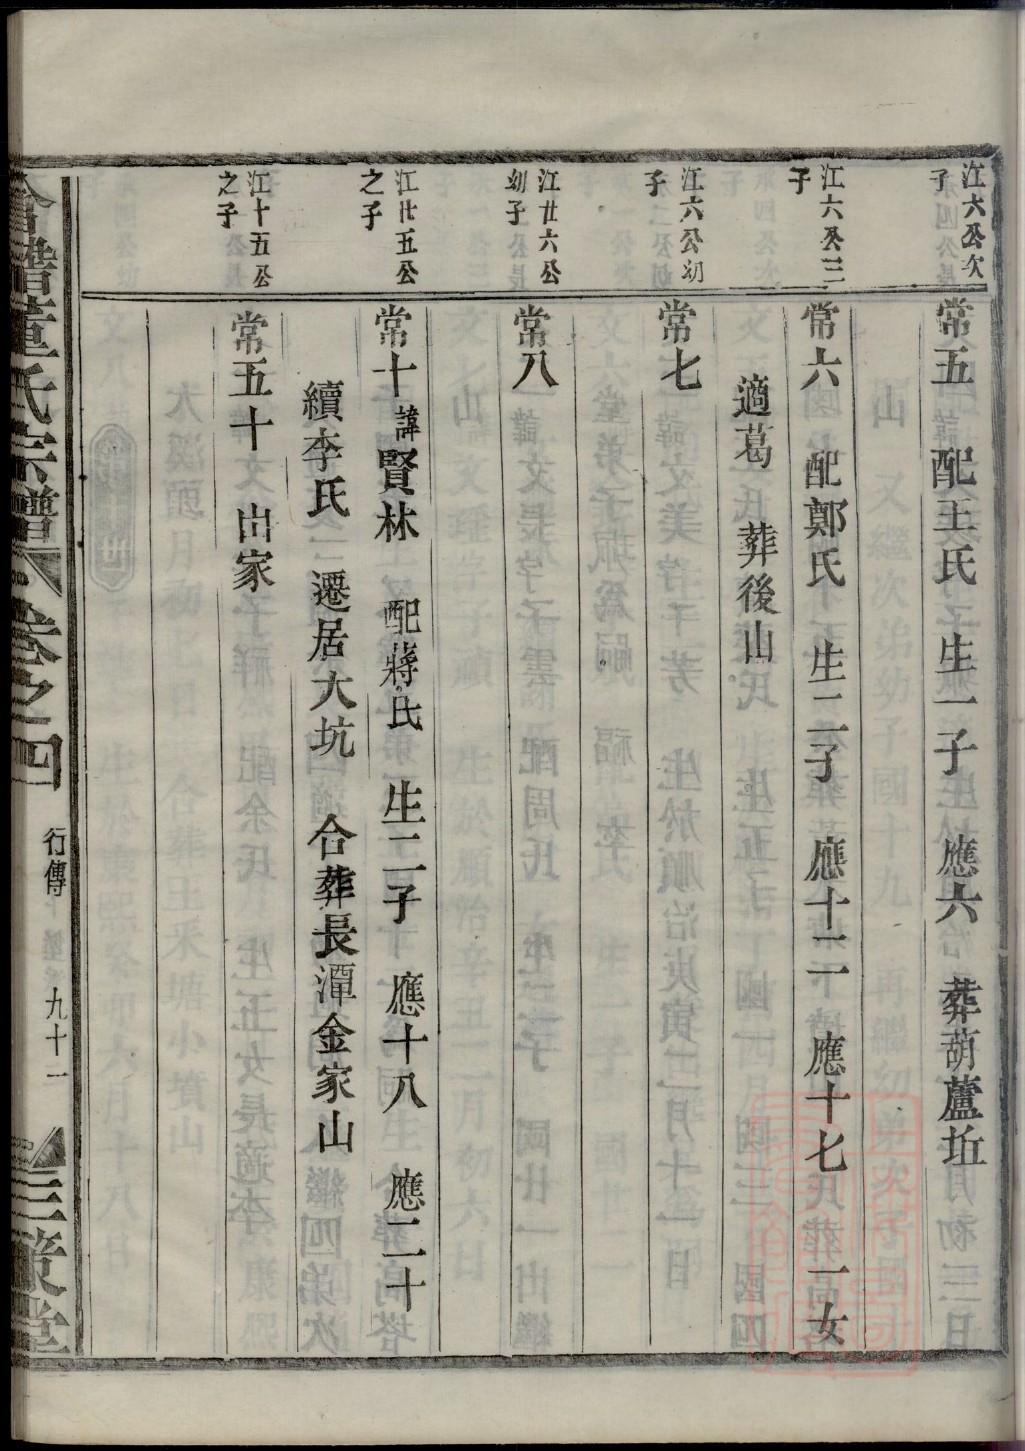 江六公次
子
常五 配王氏 生一子 應六 葬葫蘆坵
江六公三
子
常六 配鄭氏 生二子 應十二 應十七 一女
適葛 葬後山
江六公幼
子
常七
江廿六公
幼子
常八
江廿五公
之子
常十 諱賢林 配蔣氏 生二子 應十八 應二十
續李氏 遷居大坑 合葬長潭金家山
江十五公
之子
常五十 出家
合譜董氏宗譜 卷之四 行傳 九十一 三策堂